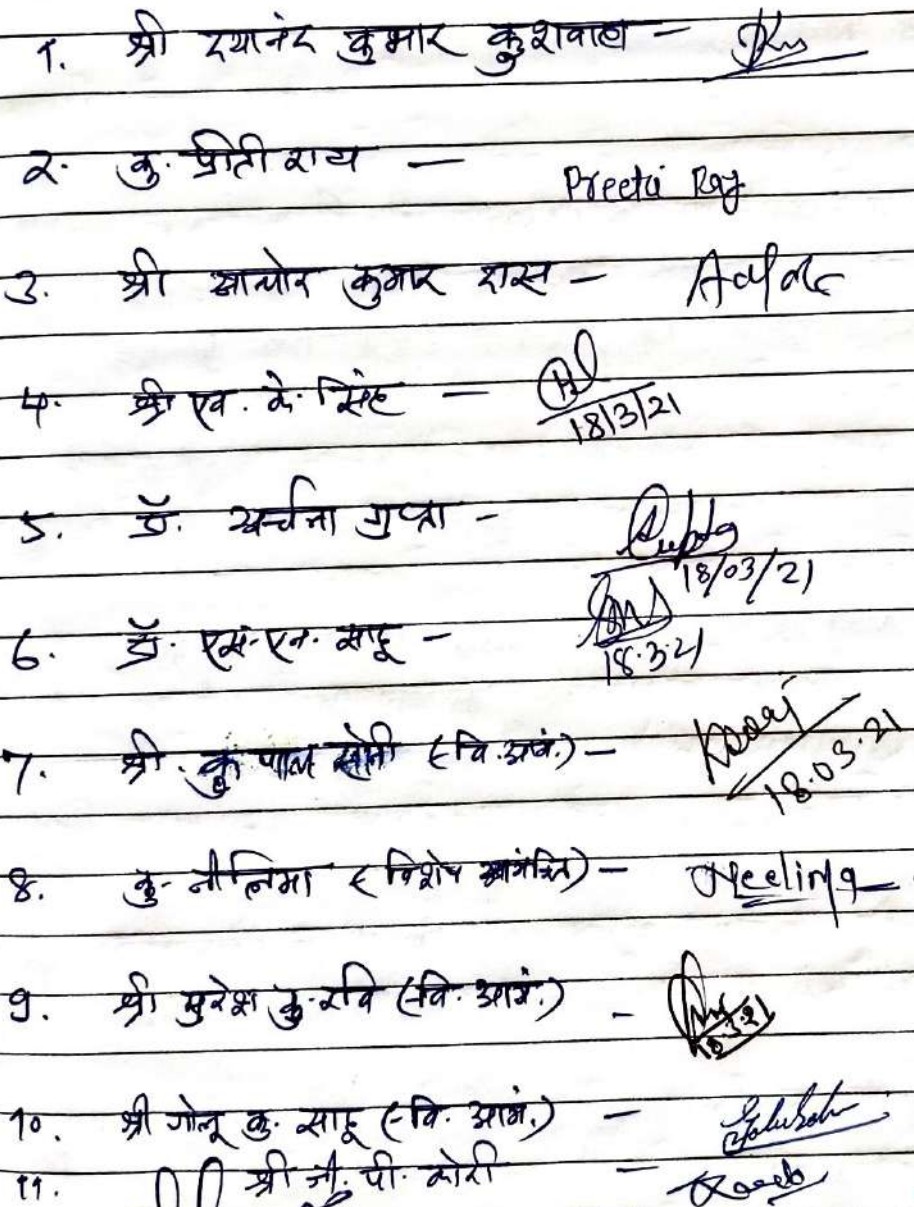 1. श्री दयानंद कुमार कुशवाहा -
2. कु. प्रीती राय — Preeti Ray
3. श्री कुमार दास -
4. श्री एच. के. सिंह — 18/3/21
5. डॉ. अर्चना गुप्ता - Gupta 18/03/21
6. डॉ. एस. एन. साहू - 18.3.21
7. श्री. कु पाल सोनी (वि. आमं.) — 18.03.21
8. कु. नीलिमा (विशेष आमंत्रित) — Neelima
9. श्री सुरेश कु. रवि (वि. आमं.) - 18.3.21
10. श्री गोलू कु. साहू (वि. आमं.) — Golu Sahu
11. श्री जी. पी. कोरी —